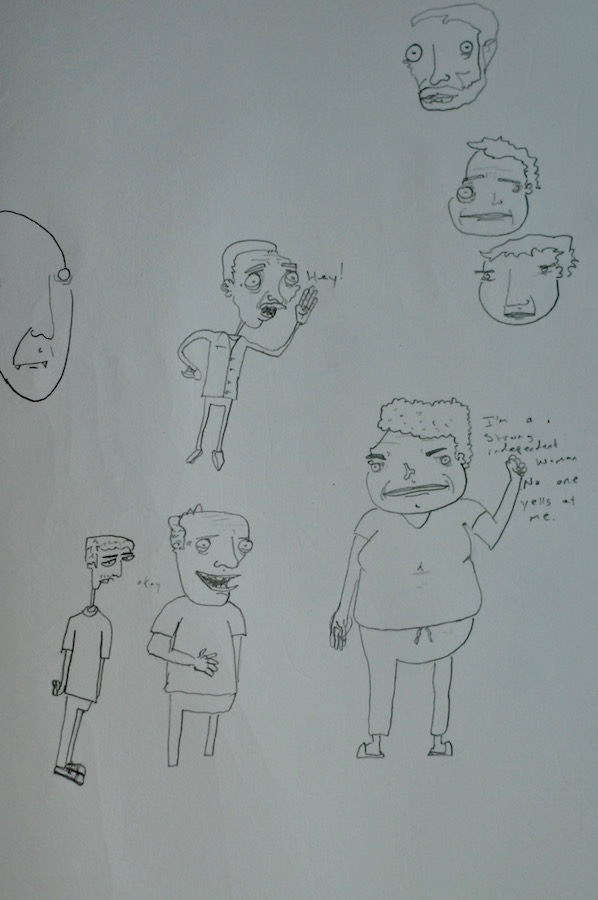 Hey!
I'm a.
Strong
independent
woman
No one
yells at
me.
okay